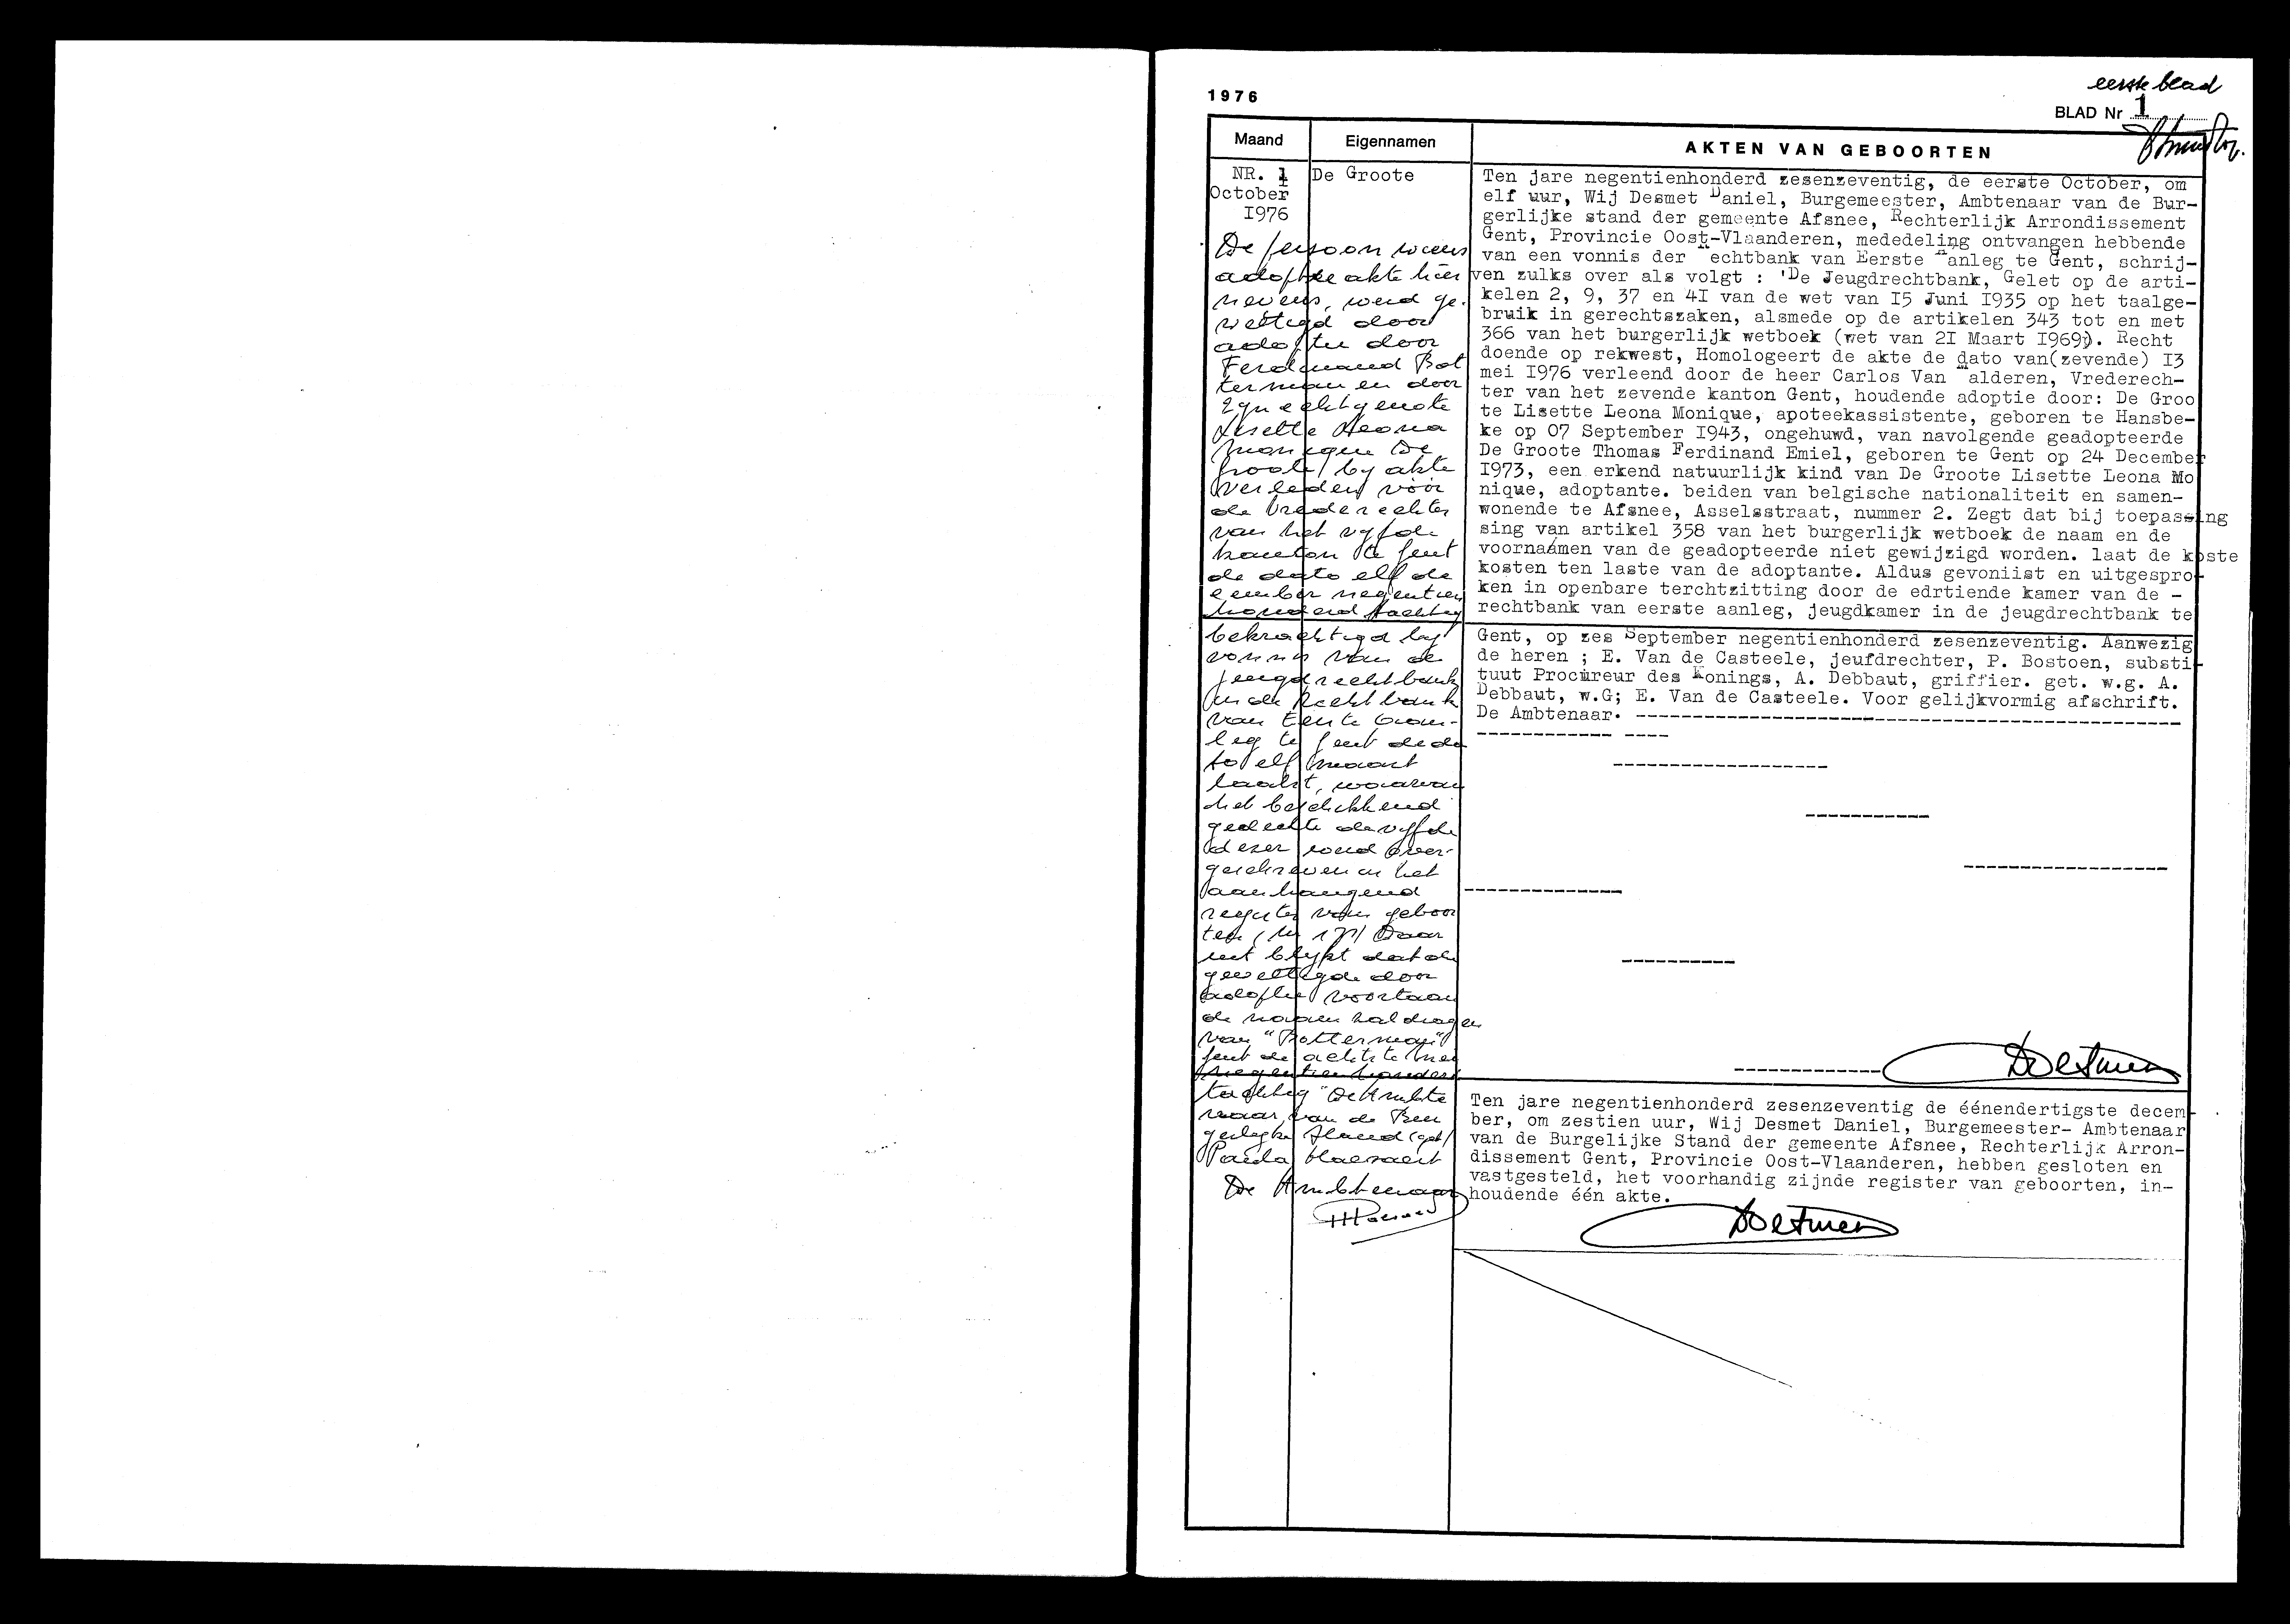 eerste blad
1976
BLAD Nr 1
Maand
Eigennamen
AKTEN VAN GEBOORTEN
NR. 1
October
I976
De Groote
De persoon wiens
adoptie akte hier
nevens, werd ge-
wettigd door
adoptie door
Ferdinand Bot
terman en door
zijn echtgenote
Lisette Leona
Monique De
Groote, by akte
verleden vóór
de Vrederechter
van het vyfde
kanton te Gent
de dato elf de
cember negentien
honderd tachtig
bekrachtigd by
vonnis van de
jeugdrechtbank
in de Rechtbank
van Eerste Aan-
leg te Gent de da
to elf maart
laatst, waarvan
het beschikkend
gedeelte de vyfde
dezer werd over-
geschreven in het
aanhangend
register van geboor
ten (Nr 17) Daar
uit blykt dat de
gewettigde door
adoptie voortaan
de naam zal dragen
van "Botterman"
Gent de achtste mei
negentienhonderd
tachtig "De Ambte
naar van de Bur
gerlyke Stand (get)
Paula
De Ambtenaar
Ten jare negentienhonderd zesenzeventig, de eerste October, om
elf uur, Wij Desmet Daniel, Burgemeester, Ambtenaar van de Bur-
gerlijke stand der gemeente Afsnee, Rechterlijk Arrondissement
Gent, Provincie Oost-Vlaanderen, mededeling ontvangen hebbende
van een vonnis der echtbank van Eerste anleg te Gent, schrij-
ven zulks over als volgt : 'De Jeugdrechtbank, Gelet op de arti-
kelen 2, 9, 37 en 4I van de wet van I5 Juni I935 op het taalge-
bruik in gerechtszaken, alsmede op de artikelen 343 tot en met
366 van het burgerlijk wetboek (wet van 2I Maart I969). Recht
doende op rekwest, Homologeert de akte de dato van(zevende) I3
mei I976 verleend door de heer Carlos Van alderen, Vrederech-
ter van het zevende kanton Gent, houdende adoptie door: De Groo
te Lisette Leona Monique, apoteekassistente, geboren te Hansbe-
ke op 07 September I943, ongehuwd, van navolgende geadopteerde
De Groote Thomas Ferdinand Emiel, geboren te Gent op 24 December
I973, een erkend natuurlijk kind van De Groote Lisette Leona Mo
nique, adoptante. beiden van belgische nationaliteit en samen-
wonende te Afsnee, Asselsstraat, nummer 2. Zegt dat bij toepassing
sing van artikel 358 van het burgerlijk wetboek de naam en de
voornaámen van de geadopteerde niet gewijzigd worden. laat de koste
kosten ten laste van de adoptante. Aldus gevoniist en uitgespro-
ken in openbare terchtzitting door de edrtiende kamer van de -
rechtbank van eerste aanleg, jeugdkamer in de jeugdrechtbank te
Gent, op zes September negentienhonderd zesenzeventig. Aanwezig
de heren ; E. Van de Casteele, jeufdrechter, P. Bostoen, substi-
tuut Procureur des Konings, A. Debbaut, griffier. get. w.g. A.
Debbaut, w.G; E. Van de Casteele. Voor gelijkvormig afschrift.
De Ambtenaar.
Ten jare negentienhonderd zesenzeventig de éénendertigste decem-
ber, om zestien uur, Wij Desmet Daniel, Burgemeester- Ambtenaar
van de Burgelijke Stand der gemeente Afsnee, Rechterlijk Arron-
dissement Gent, Provincie Oost-Vlaanderen, hebben gesloten en
vastgesteld, het voorhandig zijnde register van geboorten, in-
houdende één akte.